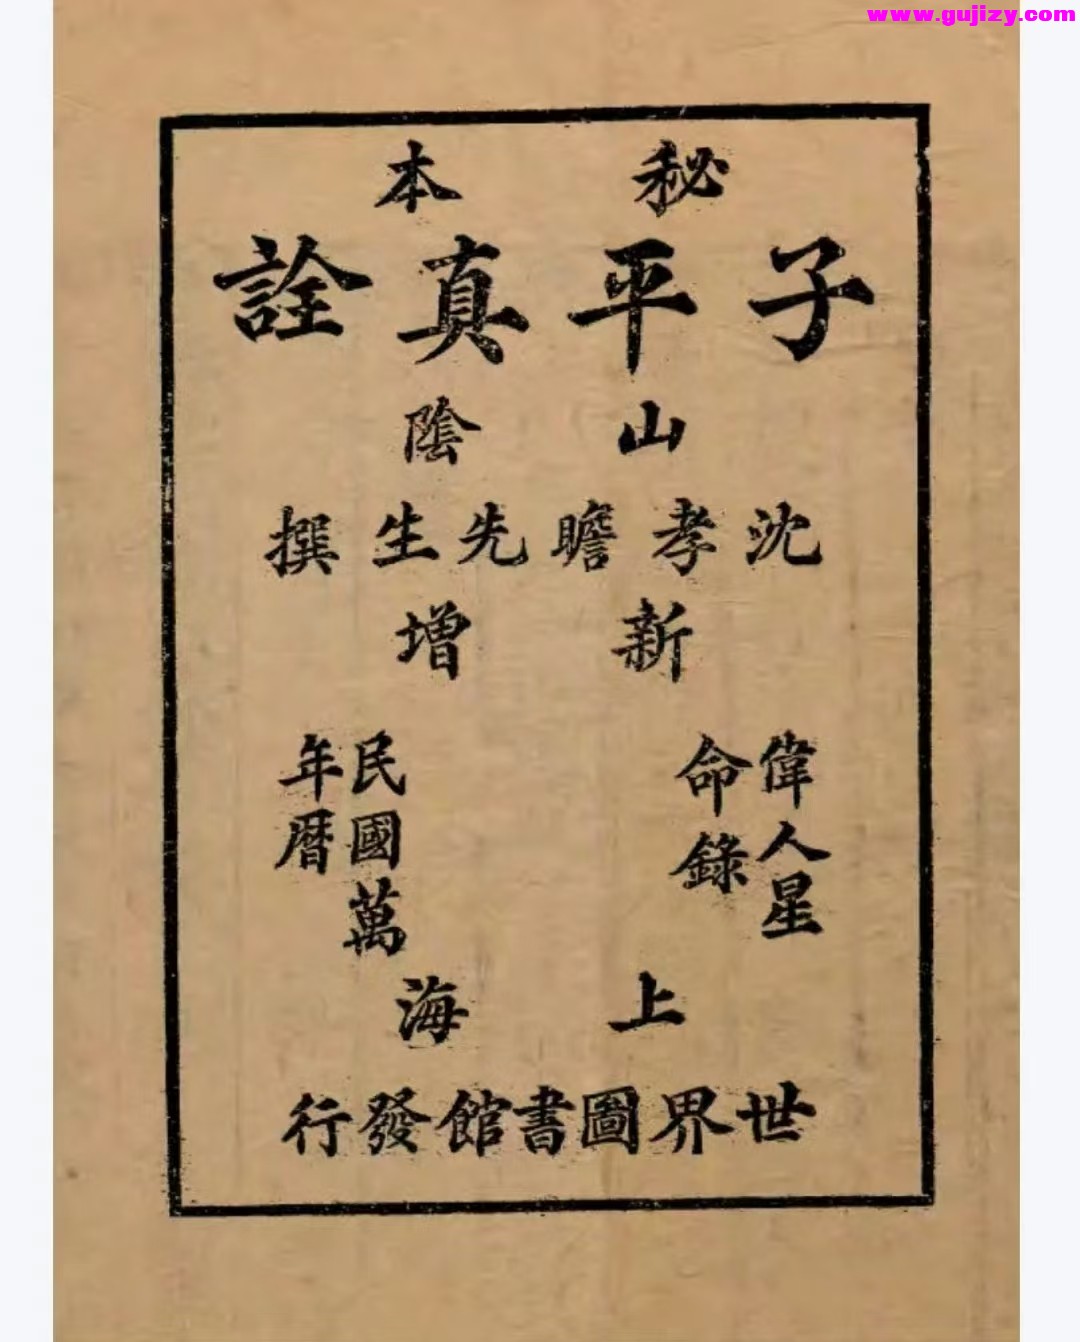 www.gujizy.com
秘本
子平真詮
山陰
沈孝瞻先生撰
新增
偉人星
命錄
民國萬
年曆
上海
世界圖書館發行